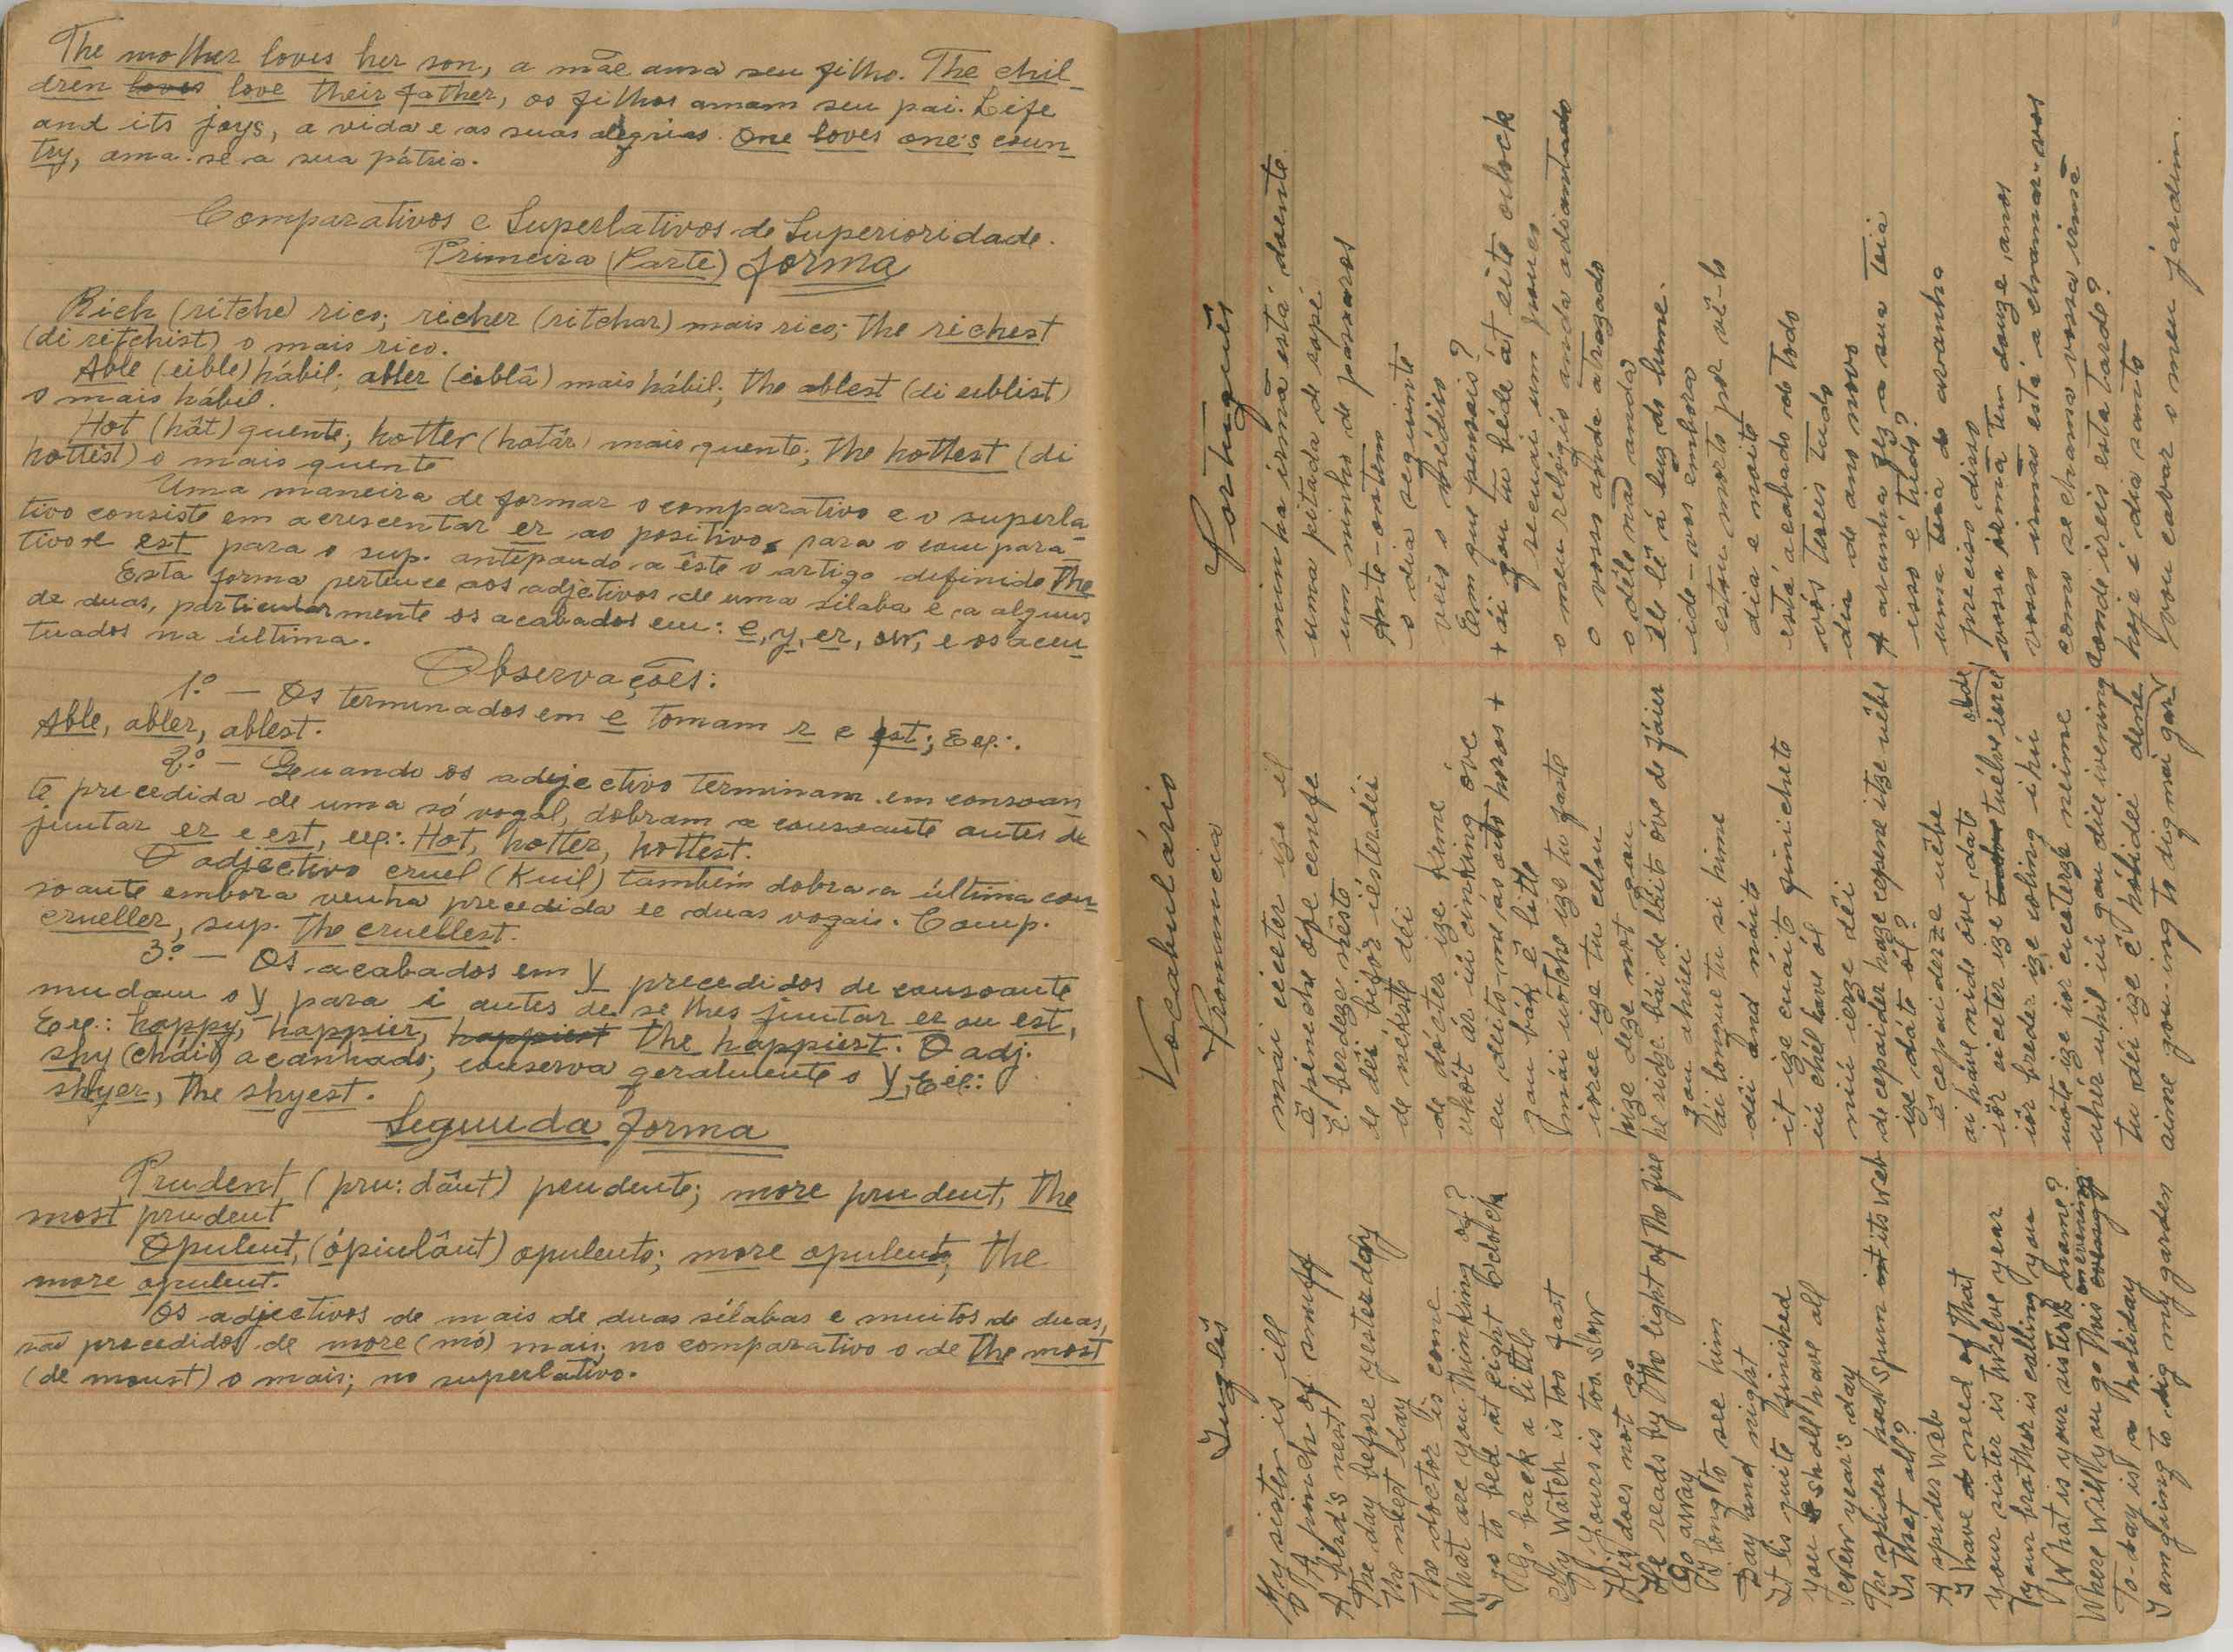 The mother loves her son, a mãe ama seu filho. The chil-
dren loves love their father, os filhos amam seu pai. Life
and its joys, a vida e as suas alegrias. One loves one's coun-
try, ama-se a sua pátria.
Comparativos e Superlativos de Superioridade.
Primeira (Parte) forma
Rich (ritche) rico; richer (ritchar) mais rico; the richest
(di ritchist) o mais rico.
Able (eible) hábil; abler (eiblâ) mais hábil; the ablest (di eiblist)
o mais hábil.
Hot (hât) quente; hotter (hatâr) mais quente; the hottest (di
hottist) o mais quente
Uma maneira de formar o comparativo e o superla-
tivo consiste em acrescentar er ao positivo, para o compara-
tivo e est para o sup. antepondo a êste o artigo definido the
Esta forma pertence aos adjetivos de uma silaba e a alguns
de duas, particularmente os acabados em: e, y, er, ow, e os acen-
tuados na última.
Observações:
1.º — Os terminados em e tomam r e est; Exp.:
Able, abler, ablest.
2.º — Quando os adjectivo terminam em consoan-
te precedida de uma só vogal, dobram a consoante antes de
juntar er e est, exp.: Hot, hotter, hottest.
O adjectivo cruel (Kuil) também dobra a última con-
soante embora venha precedida de duas vogais. Comp.
crueller, sup. the cruellest.
3.º — Os acabados em y precedidos de consoante
mudam o y para i antes de se lhes juntar er ou est,
Exp.: happy, happier, happiest the happiest. O adj.
shy (chái) acanhado; conserva geralmente o y, Exp.:
shyer, the shyest.
Segunda forma
Prudent (pru: dânt) prudente; more prudent, the
most prudent
Opulent, (ópiulânt) opulento; more opulent, the
more opulent.
Os adjectivos de mais de duas sílabas e muitos de duas,
são precedidos de more (mó) mais; no comparativo o de the most
(de moust) o mais; no superlativo.
Vocabulário
Inglês Pronuncia Português
My sister is ill mái cicter ize il minha irmã está doente
A pinch of snuff ê pinche ofe cenefe uma pitada de rapé
A bird's nest ê berdeze neste um ninho de pássaros
The day before yesterday de dêi bifór iésterdêi Ante-ontem
The next day de nekste dêi o dia seguinte
The doctor is come de dócter ize kime veis o médico
What are you thinking of? vhót ár iú cinking óve Em que pensais?
I go to bed at eight o'clock eu deito-me ás oito horas + + ái gou tu béde át eite oclock
Go back a little gou bák ê litle recuai um pouco
My watch is too fast mái uótche ize tu faste o meu relógio anda adiantado
Yours is too slow iorce ize tu celou o vosso anda atrazado
His does not go hize deze not gou o dêle não anda
He reads by the light of the fire he ridze bái de láite óve de fáier êle lê á luz do lume.
Go away gou ahúei ide-vos embora
I long to see him ái longue tu si hime estou morto por vê-lo
Day and night dêi and náite dia e noite
It is quite finished it ize cuáite finichete está acabado de todo
You shall have all iú chél have ól vós tereis tudo
New year's day niú ierze dêi dia de ano novo
The spider has spun int its web de cepaider haze cepene itze uébe A aranha fez a sua teia
Is that all? ize dáte ól? isso é tudo?
A spider web ê cepaiderze uébe uma teia de aranha
I have need of that ai háve nide óve date preciso disso
your sister is twelve year iór cicter ize tuélve ierce vossa irmã tem douze anos
your brother is calling you iór breder ize coling iú vosso irmão está a chamar-vos
What is your sister's name? uóte ize ior cicterze neime como se chama vossa irmã
Where will you go this evening uher uhil iú gou dice ivening onde ireis esta tarde?
To-day is a holiday tu dêi ize ê hólidei hoje é dia santo
I am going to dig my garden aime gou-ing tu dig mai gardene vou cavar o meu jardim.